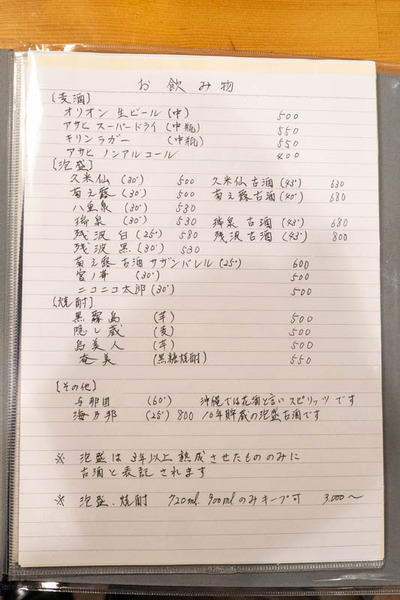 お飲み物
[麦酒]
オリオン 生ビール (中) 500
アサヒ スーパードライ (中瓶) 550
キリン ラガー (中瓶) 550
アサヒ ノンアルコール 400
[泡盛]
久米仙 (30°) 500 久米仙古酒 (43°) 630
菊之露 (30°) 500 菊之露古酒 (40°) 680
八重泉 (30°) 530
瑞泉 (30°) 530 瑞泉古酒 (43°) 680
残波 白 (25°) 580 残波古酒 (43°) 800
残波 黒 (30°) 530
菊之露 古酒 サザンバレル (25°) 600
宮の華 (30°) 500
ニコニコ太郎 (30°) 500
[焼酎]
黒霧島 (芋) 500
隠し蔵 (麦) 500
島美人 (芋) 500
奄美 (黒糖焼酎) 550
[その他]
与那国 (60°) 沖縄では花酒と言いスピリッツです
海乃邦 (25°) 800 10年貯蔵の泡盛古酒です
※ 泡盛は3年以上熟成させたもののみに
古酒と表記されます
※ 泡盛、焼酎 720ml. 900mlのみキープ可 3,000〜